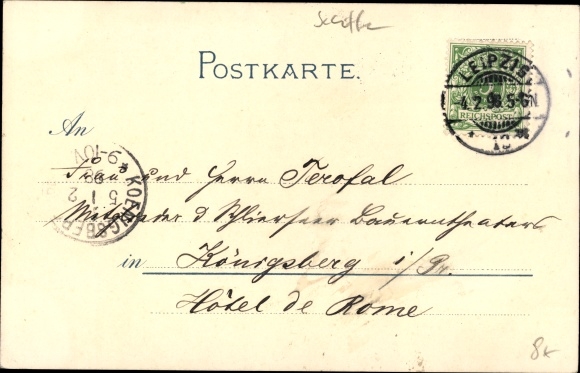 POSTKARTE.
LEIPZIG
4.2.98.5-6N.
10
REICHSPOST
An
Frau und Herrn Terofal
Mitglieder d Schlierseer Bauerntheaters
in Königsberg i/Pr.
Hôtel de Rome
KOENIGSBERG
5 2
98
9-10V
8x